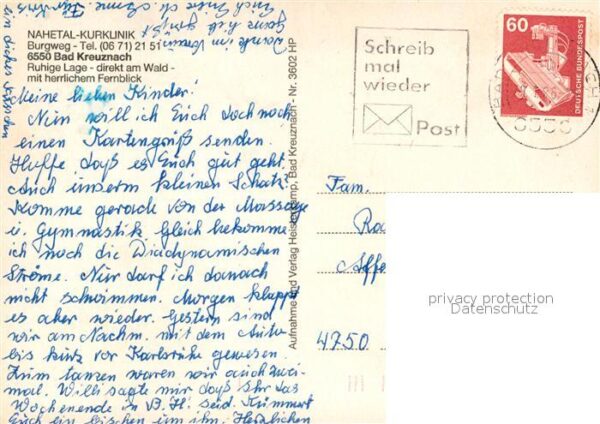 NAHETAL-KURKLINIK
Burgweg - Tel. (06 71) 21 51
6550 Bad Kreuznach
Ruhige Lage - direkt am Wald -
mit herrlichem Fernblick
Meine lieben Kinder!
Nun will ich Euch doch noch
einen Kartengruß senden.
Hoffe daß es Euch gut geht
Auch unserm kleinen Schatz.
Komme gerade von der Massage
u. Gymnastik. Gleich bekomme
ich noch die Diadynamischen
Ströme. Nur darf ich danach
nicht schwimmen. Morgen klappt
es aber wieder. Gestern sind
wir am Nachm. mit dem Auto
bis kurz vor Karlsruhe gewesen.
Zum tanzen waren wir auch zwei-
mal. Willi sagte mir daß Ihr das
Wochenende in B.H. seid. Kümmert
Euch ein bischen um ihn. Herzlichen
Aufnahme und Verlag Bad Kreuznach - Nr. 3602 HP
Schreib
mal
wieder
Post
60
DEUTSCHE BUNDESPOST
Fam.
4750
privacy protection
Datenschutz